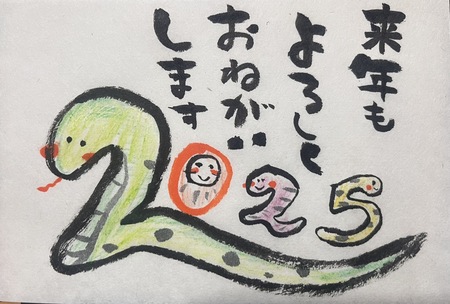 来年も
よろしく
おねがい
します
2025